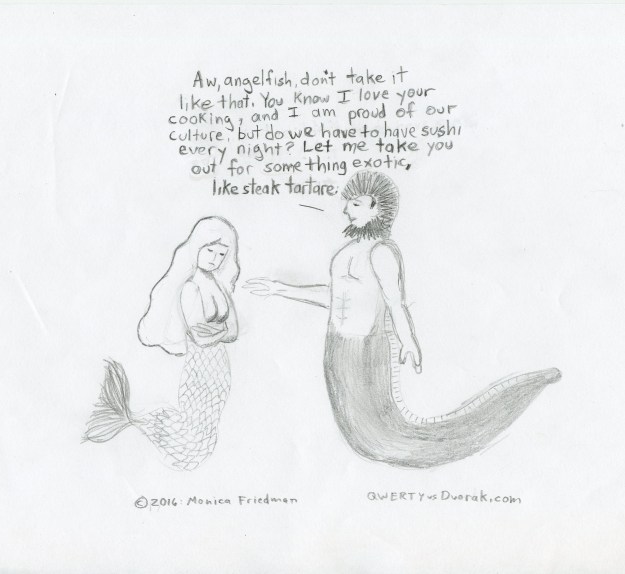 Aw, angelfish, don't take it
like that. You know I love your
cooking, and I am proud of our
culture, but do we have to have sushi
every night? Let me take you
out for something exotic,
like steak tartare.
©2016 Monica Friedman
QWERTYvsDvorak.com